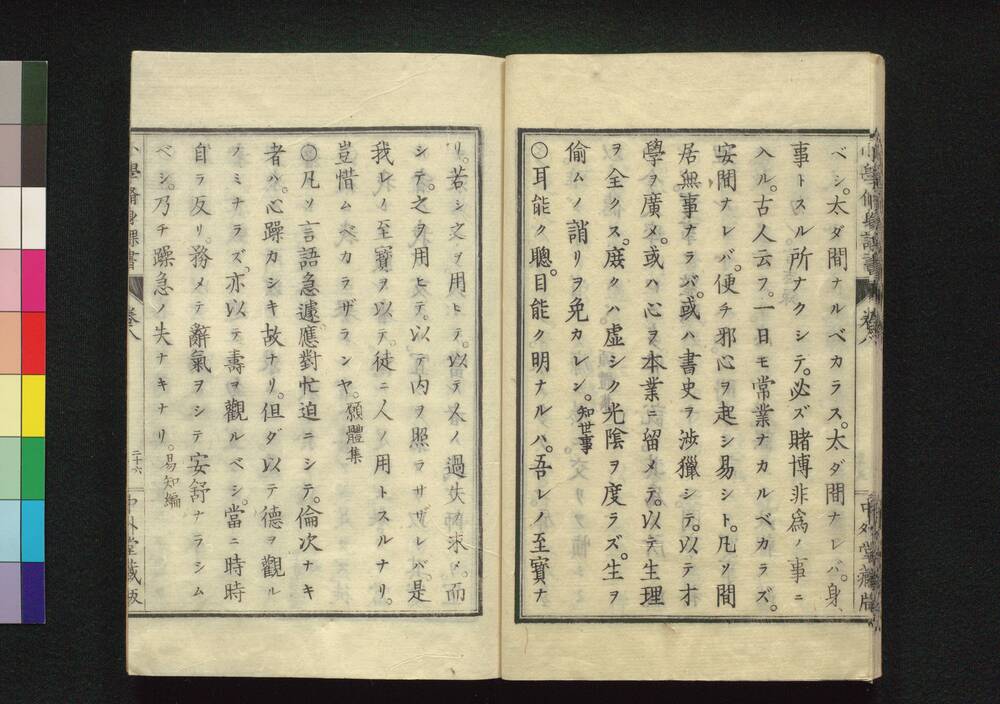 小學脩身課書
卷八
中外堂藏版
ベシ。太ダ閒ナルベカラス。太ダ閒ナレバ。身
事トスル所ナクシテ。必ズ賭博非爲ノ事ニ
入ル。古人云フ。一日モ常業ナカルベカラズ。
安閒ナレバ。便チ邪心ヲ起シ易シト。凡ソ閒
居無事ナラバ。或ハ書史ヲ涉獵シテ。以テ才
學ヲ廣メ。或ハ心ヲ本業ニ留メテ。以テ生理
ヲ全クス。庶クハ虛シク光陰ヲ度ラズ。生ヲ
偷ムノ誚リヲ免カレン。知世事
〇耳能ク聰。目能ク明ナルハ。吾レノ至寳ナ
リ。若シ之ヲ用ヒテ。以テ人ノ過失ヲ求メ。而
シテ。之ヲ用ヒテ。以テ内ヲ照ラサザレバ。是
我レノ至寳ヲ以テ。徒ニ人ノ用トスルナリ。
豈惜ムベカラザランヤ。願體集
〇凡ソ言語急遽。應對忙迫ニシテ。倫次ナキ
者ハ。心躁カシキ故ナリ。但ダ以テ德ヲ觀ル
ノミナラズ。亦以テ壽ヲ觀ルベシ。當ニ時時
自ラ反リ。務メテ辭氣ヲシテ安舒ナラシム
ベシ。乃チ躁急ノ失ナキナリ。易知編
小學脩身課書
卷八
二十六
中外堂藏版